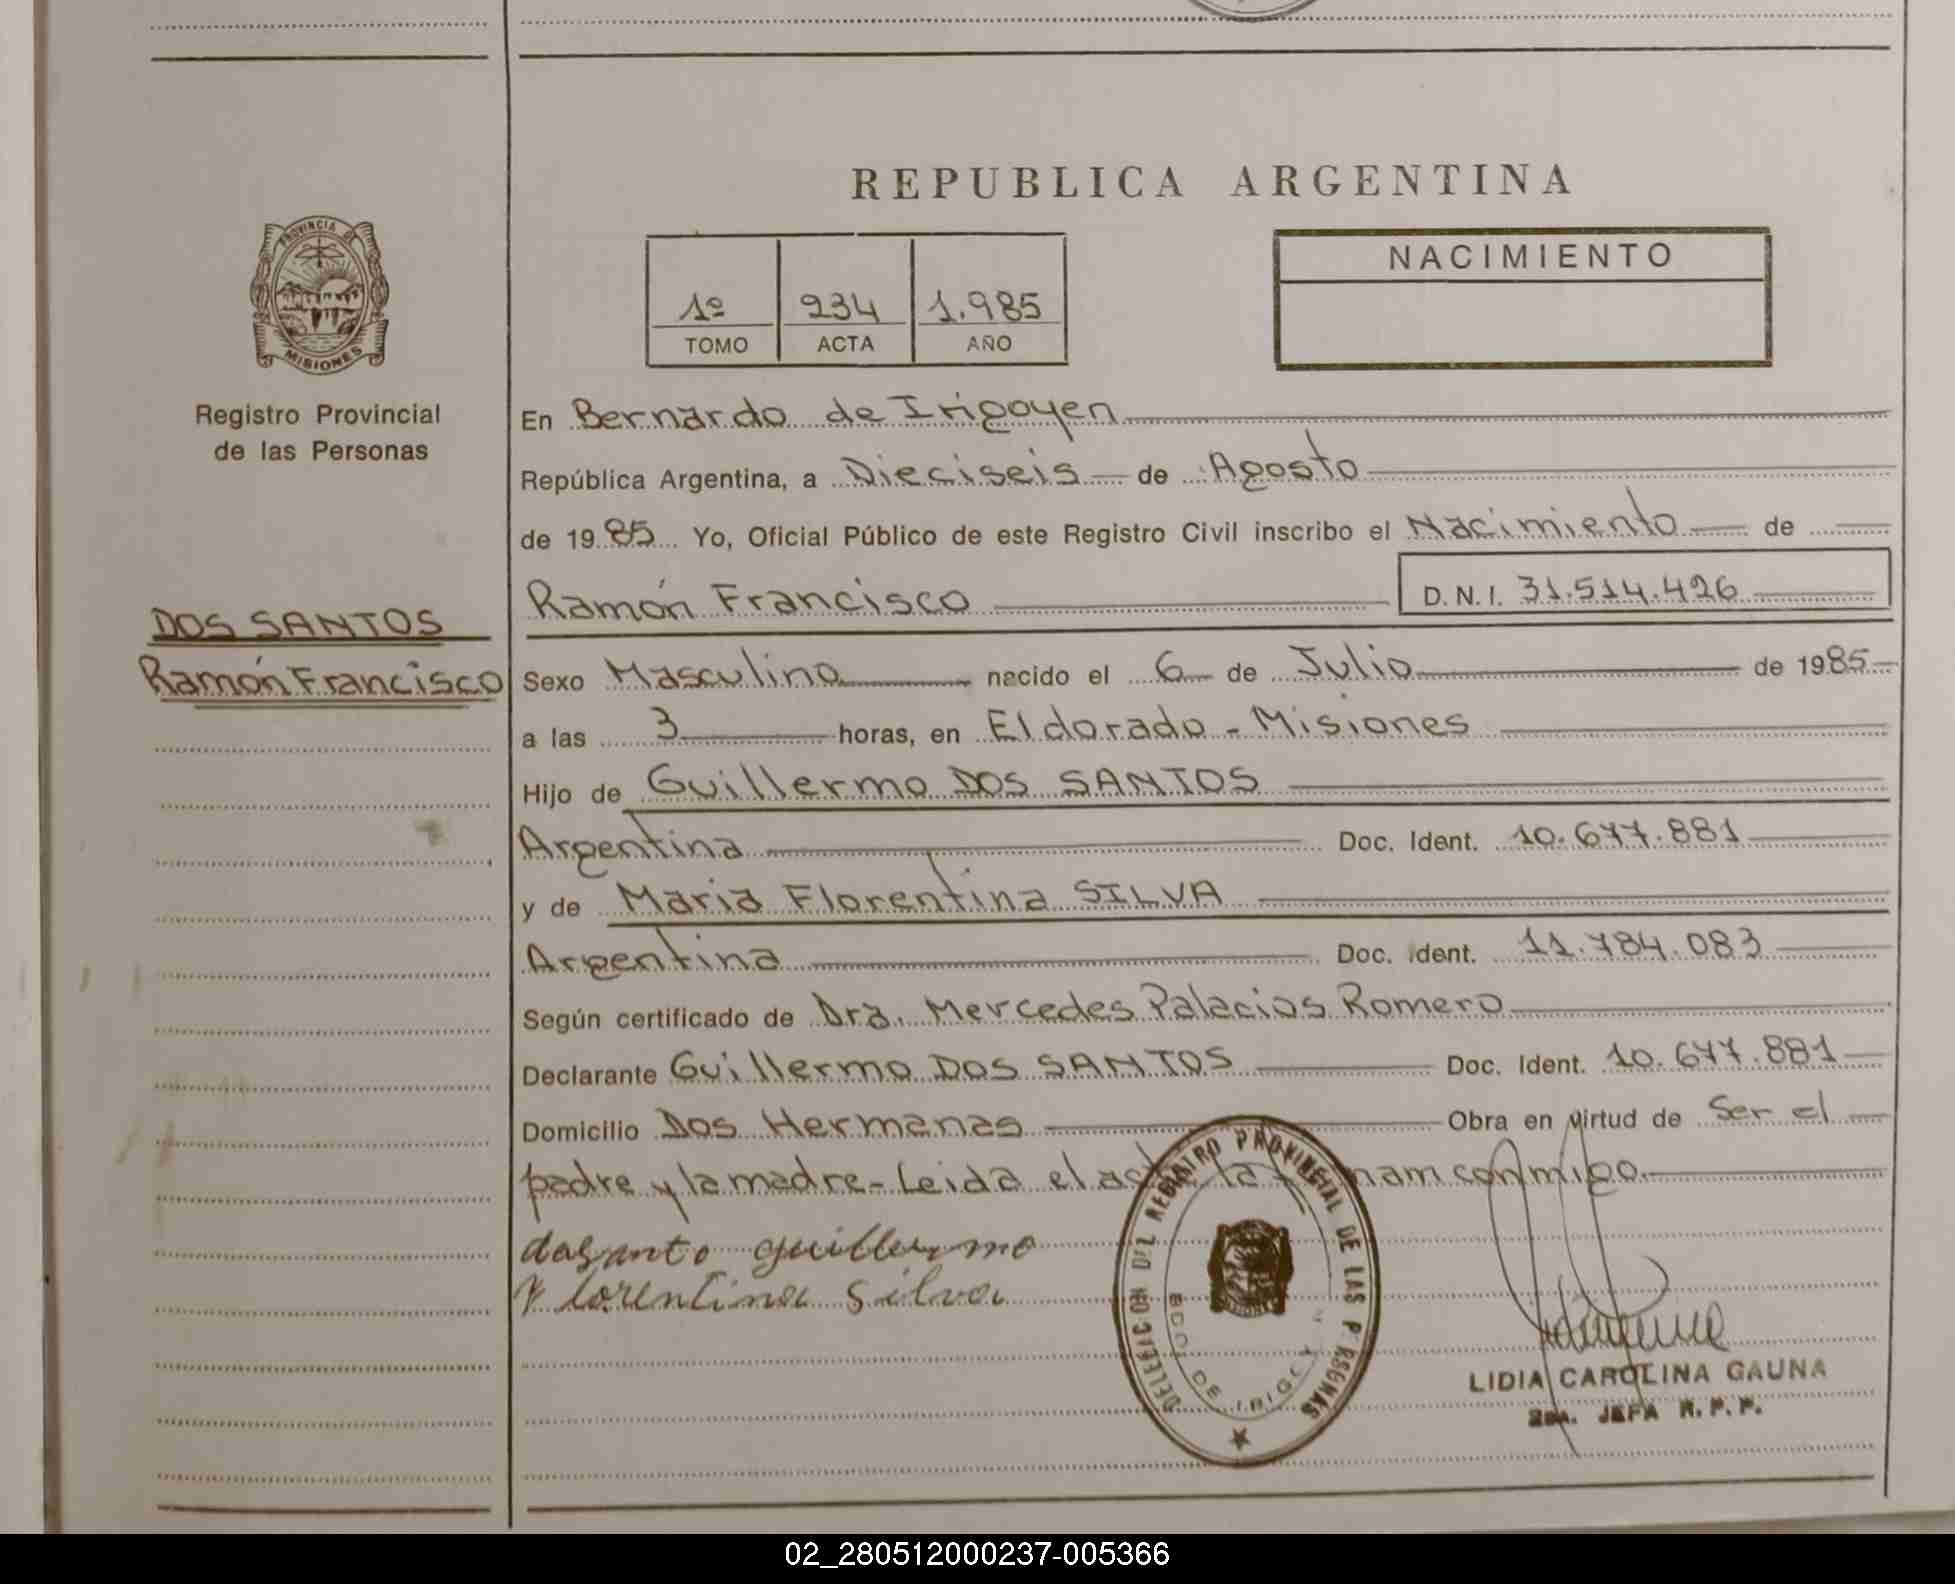 REPUBLICA ARGENTINA
PROVINCIA DE
MISIONES
Registro Provincial
de las Personas
1º 234 1.985
TOMO ACTA AÑO
NACIMIENTO
En Bernardo de Irigoyen
República Argentina, a Dieciseis de Agosto
de 1985 Yo, Oficial Público de este Registro Civil inscribo el Nacimiento de
Ramón Francisco D.N.I. 31.514.426
DOS SANTOS
Ramón Francisco
Sexo Masculino nacido el 6 de Julio de 1985
a las 3 horas, en Eldorado - Misiones
Hijo de Guillermo DOS SANTOS
Argentina Doc. Ident. 10.677.881
y de Maria Florentina SILVA
Argentina Doc. Ident. 11.784.083
Según certificado de Dra. Mercedes Palacios Romero
Declarante Guillermo DOS SANTOS Doc. Ident. 10.677.881
Domicilio Dos Hermanas Obra en virtud de Ser el
padre y la madre - Leida el la conmigo.
dosanto guillermo
Florentina Silva
DELEGACION DEL REGISTRO PROVINCIAL DE LAS PERSONAS
BDO. DE IRIGOYEN
LIDIA CAROLINA GAUNA
2da. JEFA R.P.P.
02_280512000237-005366